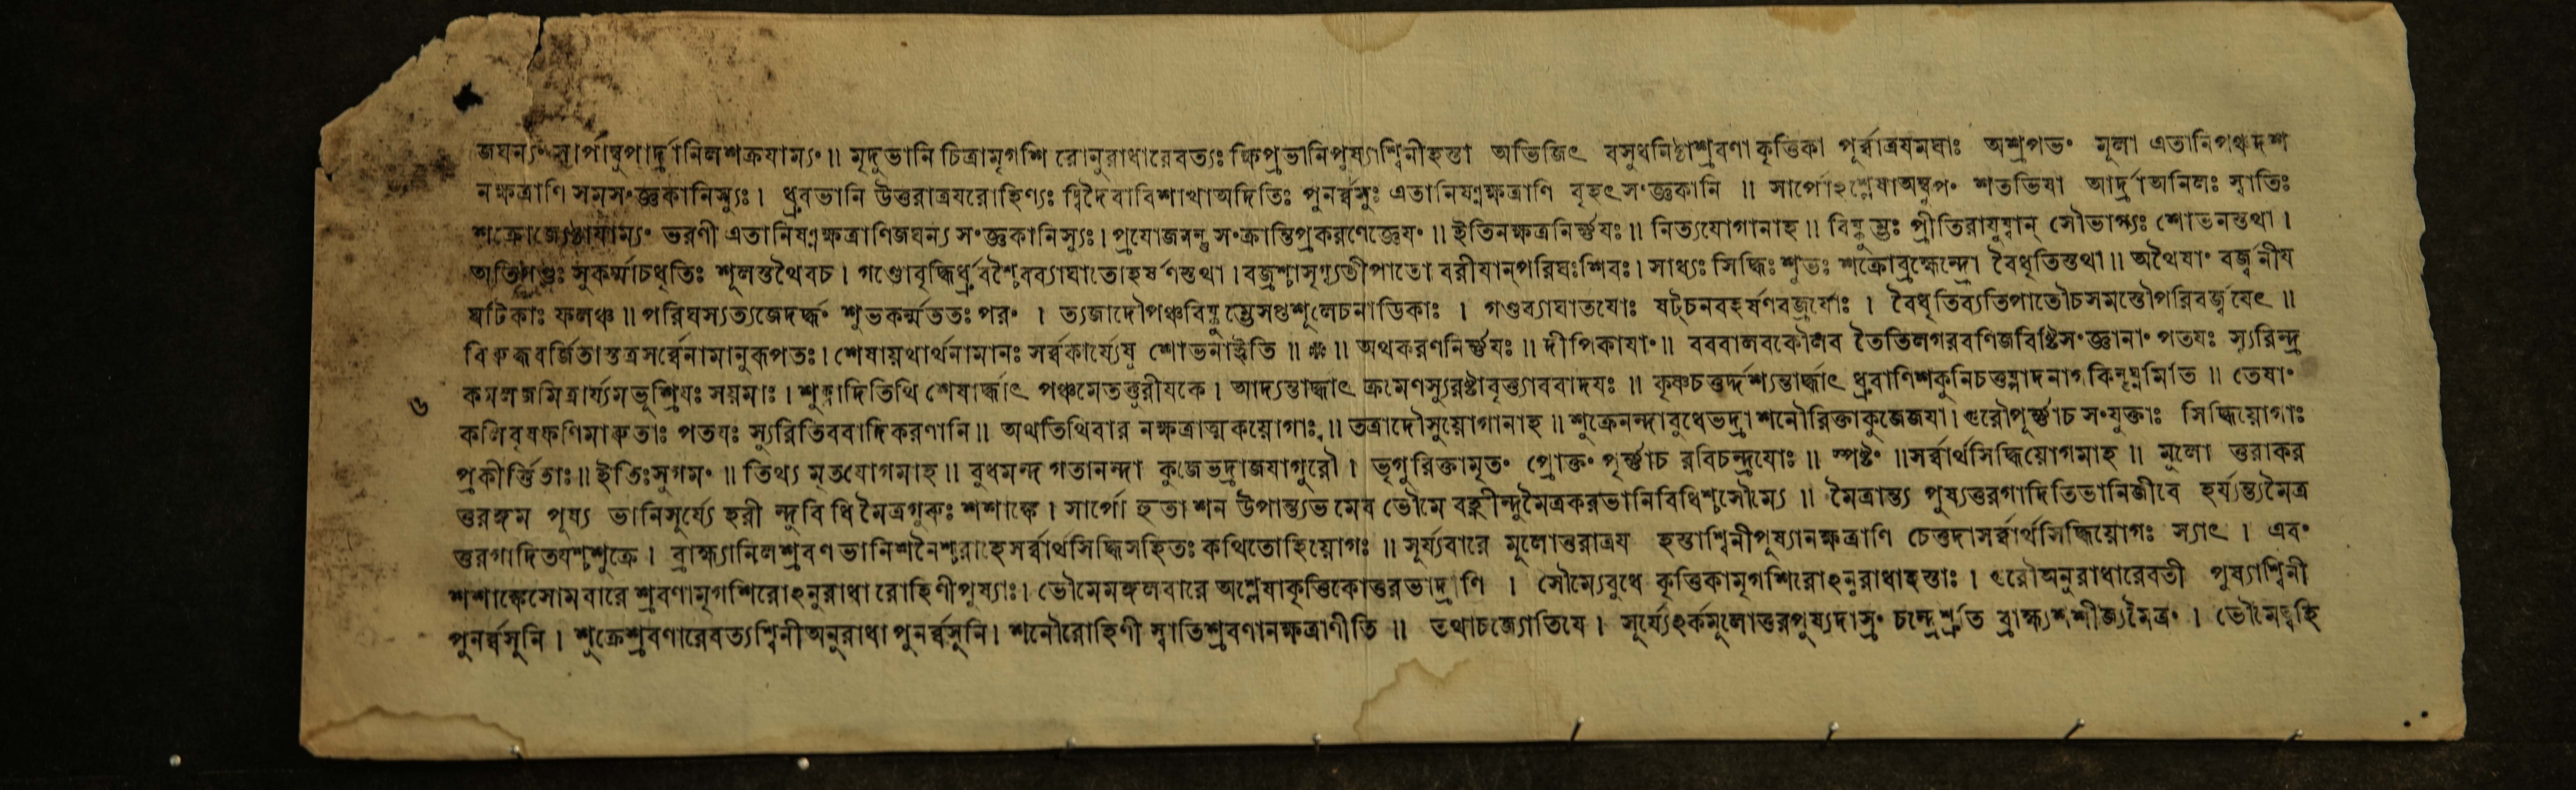 জঘন্যং সার্পাম্বুপার্দ্রানিলশক্রযাম্যং ॥ মৃদুভানি চিত্রামৃগশি রোনুরাধারেবত্যঃ ক্ষিপ্রভানিপুষ্যাশ্বিনীহস্তা অভিজিৎ বসুধনিষ্ঠাশ্রবণা কৃত্তিকা পূর্ব্বাত্রযমঘাঃ অশ্রপভং মূলা এতানিপঞ্চদশ
নক্ষত্রাণি সমসংজ্ঞকানিস্যুঃ । ধ্রুবভানি উত্তরাত্রযরোহিণ্যঃ দ্বিদৈবাবিশাখাঅদিতিঃ পুনর্ব্বসুঃ এতানিষণ্নক্ষত্রাণি বৃহৎসংজ্ঞকানি ॥ সার্পোঽশ্লেষাঅম্বুপং শতভিষা আর্দ্রাঅনিলঃ স্বাতিঃ
শক্রোজ্যেষ্ঠাযাম্যং ভরণী এতানিষণ্নক্ষত্রাণিজঘন্য সংজ্ঞকানিস্যুঃ । প্রযোজনন্তু সংক্রান্তিপ্রকরণেজ্ঞেযং ॥ ইতিনক্ষত্রনির্ণ্ণযঃ ॥ নিত্যযোগানাহ ॥ বিষ্কুম্ভঃ প্রীতিরাযুষ্মান্ সৌভাগ্যঃ শোভনস্তথা ।
অতিগণ্ডঃ সুকর্ম্মাচধৃতিঃ শূলস্তথৈবচ । গণ্ডোবৃদ্ধির্ধ্রুবশ্চৈবব্যাঘাতোহর্ষণস্তথা । বজ্রশ্চাসৃগ্ব্যতীপাতো বরীযান্পরিঘঃশিবঃ । সাধ্যঃ সিদ্ধিঃ শুভঃ শক্রোব্রহ্মেন্দ্রো বৈধৃতিস্তথা ॥ অথৈষাং বর্জ্জনীয
ঘটিকাঃ ফলঞ্চ ॥ পরিঘস্যত্যজেদর্দ্ধং শুভকর্ম্মততঃ পরং । ত্যজাদৌপঞ্চবিষ্কুম্ভেসপ্তশূলেচনাডিকাঃ । গণ্ডব্যাঘাতযোঃ ষট্চনবহর্ষণবজ্রযোঃ । বৈধৃতিব্যতিপাতৌচসমস্তৌপরিবর্জ্জযেৎ ॥
বিরুদ্ধবর্জিতাস্তত্রসর্ব্বেনামানুরূপতঃ । শেষায়থার্থনামানঃ সর্ব্বকার্য্যেষু শোভনাইতি ॥ ॥ অথকরণনির্ণ্ণযঃ ॥ দীপিকাযাং ॥ বববালবকৌলব তৈতিলগরবণিজবিষ্টিসংজ্ঞানাং পতযঃ স্যুরিন্দ্র
৬ কমলজমিত্রার্য্যমভূশ্রিযঃ সয়মাঃ । শুক্লাদিতিথি শেষার্দ্ধাৎ পঞ্চমেতত্তুরীযকে । আদ্যন্তার্দ্ধাৎ ক্রমেণস্যুরষ্টাবৃত্ত্যাববাদযঃ ॥ কৃষ্ণচতুর্দ্দশ্যন্তার্দ্ধাৎ ধ্রুবাণিশকুনিচতুষ্পাদনাগকিন্তুঘ্নমিতি ॥ তেষাং
কলিবৃষফণিমারুতাঃ পতযঃ স্যুরিতিববাদিকরণানি ॥ অথতিথিবার নক্ষত্রাত্মকয়োগাঃ ॥ তত্রাদৌসুয়োগানাহ ॥ শুক্রেনন্দাবুধেভদ্রা শনৌরিক্তাকুজেজযা । গুরৌপূর্ণ্ণাচ সংযুক্তাঃ সিদ্ধিয়োগাঃ
প্রকীর্ত্তিতাঃ ॥ ইতিঃসুগমং ॥ তিথ্য মৃতযোগমাহ ॥ বুধমন্দ গতানন্দা কুজেভদ্রাজযাগুরৌ । ভৃগুরিক্তামৃতং প্রোক্তং পূর্ণ্ণাচ রবিচন্দ্রযোঃ ॥ স্পষ্টং ॥ সর্ব্বার্থসিদ্ধিয়োগমাহ ॥ মূলো ত্তরাকর
ত্তুরঙ্গম পুষ্য ভানিসূর্য্যে হরী ন্দুবিধি মৈত্রগুরুঃ শশাঙ্কে । সার্পো হুতাশন উপান্ত্যভ মেব ভৌমে বহ্নীন্দুমৈত্রকরভানিবিধিশ্চসৌম্যে ॥ মৈত্রান্ত্য পুষ্যত্তুরগাদিতিভানিজীবে হর্য্যন্ত্যমৈত্র
ত্তুরগাদিতযশ্চশুক্রে । ব্রাহ্ম্যানিলশ্রবণ ভানিশনৈশ্চরাহেসর্ব্বার্থসিদ্ধিসহিতঃ কথিতোহিয়োগঃ ॥ সূর্য্যবারে মূলোত্তরাত্রয হস্তাশ্বিনীপুষ্যানক্ষত্রাণি চেত্তদাসর্ব্বার্থসিদ্ধিয়োগঃ স্যাৎ । এবং
শশাঙ্কেসোমবারে শ্রবণামৃগশিরোঽনুরাধা রোহিণীপুষ্যাঃ । ভৌমেমঙ্গলবারে অশ্লেষাকৃত্তিকোত্তরভাদ্রাণি । সৌম্যেবুধে কৃত্তিকামৃগশিরোঽনুরাধাহস্তাঃ । গুরৌঅনুরাধারেবতী পুষ্যাশ্বিনী
পুনর্ব্বসূনি । শুক্রেশ্রবণারেবত্যশ্বিনীঅনুরাধা পুনর্ব্বসূনি । শনৌরোহিণী স্বাতিশ্রবণানক্ষত্রাণীতি ॥ তথাচজ্যোতিষে । সূর্য্যেঽর্কমূলোত্তরপুষ্যদাস্রং চন্দ্রেশ্রুতি ব্রাহ্ম্যশশীজ্যমৈত্রং । ভৌমেহ্যহি